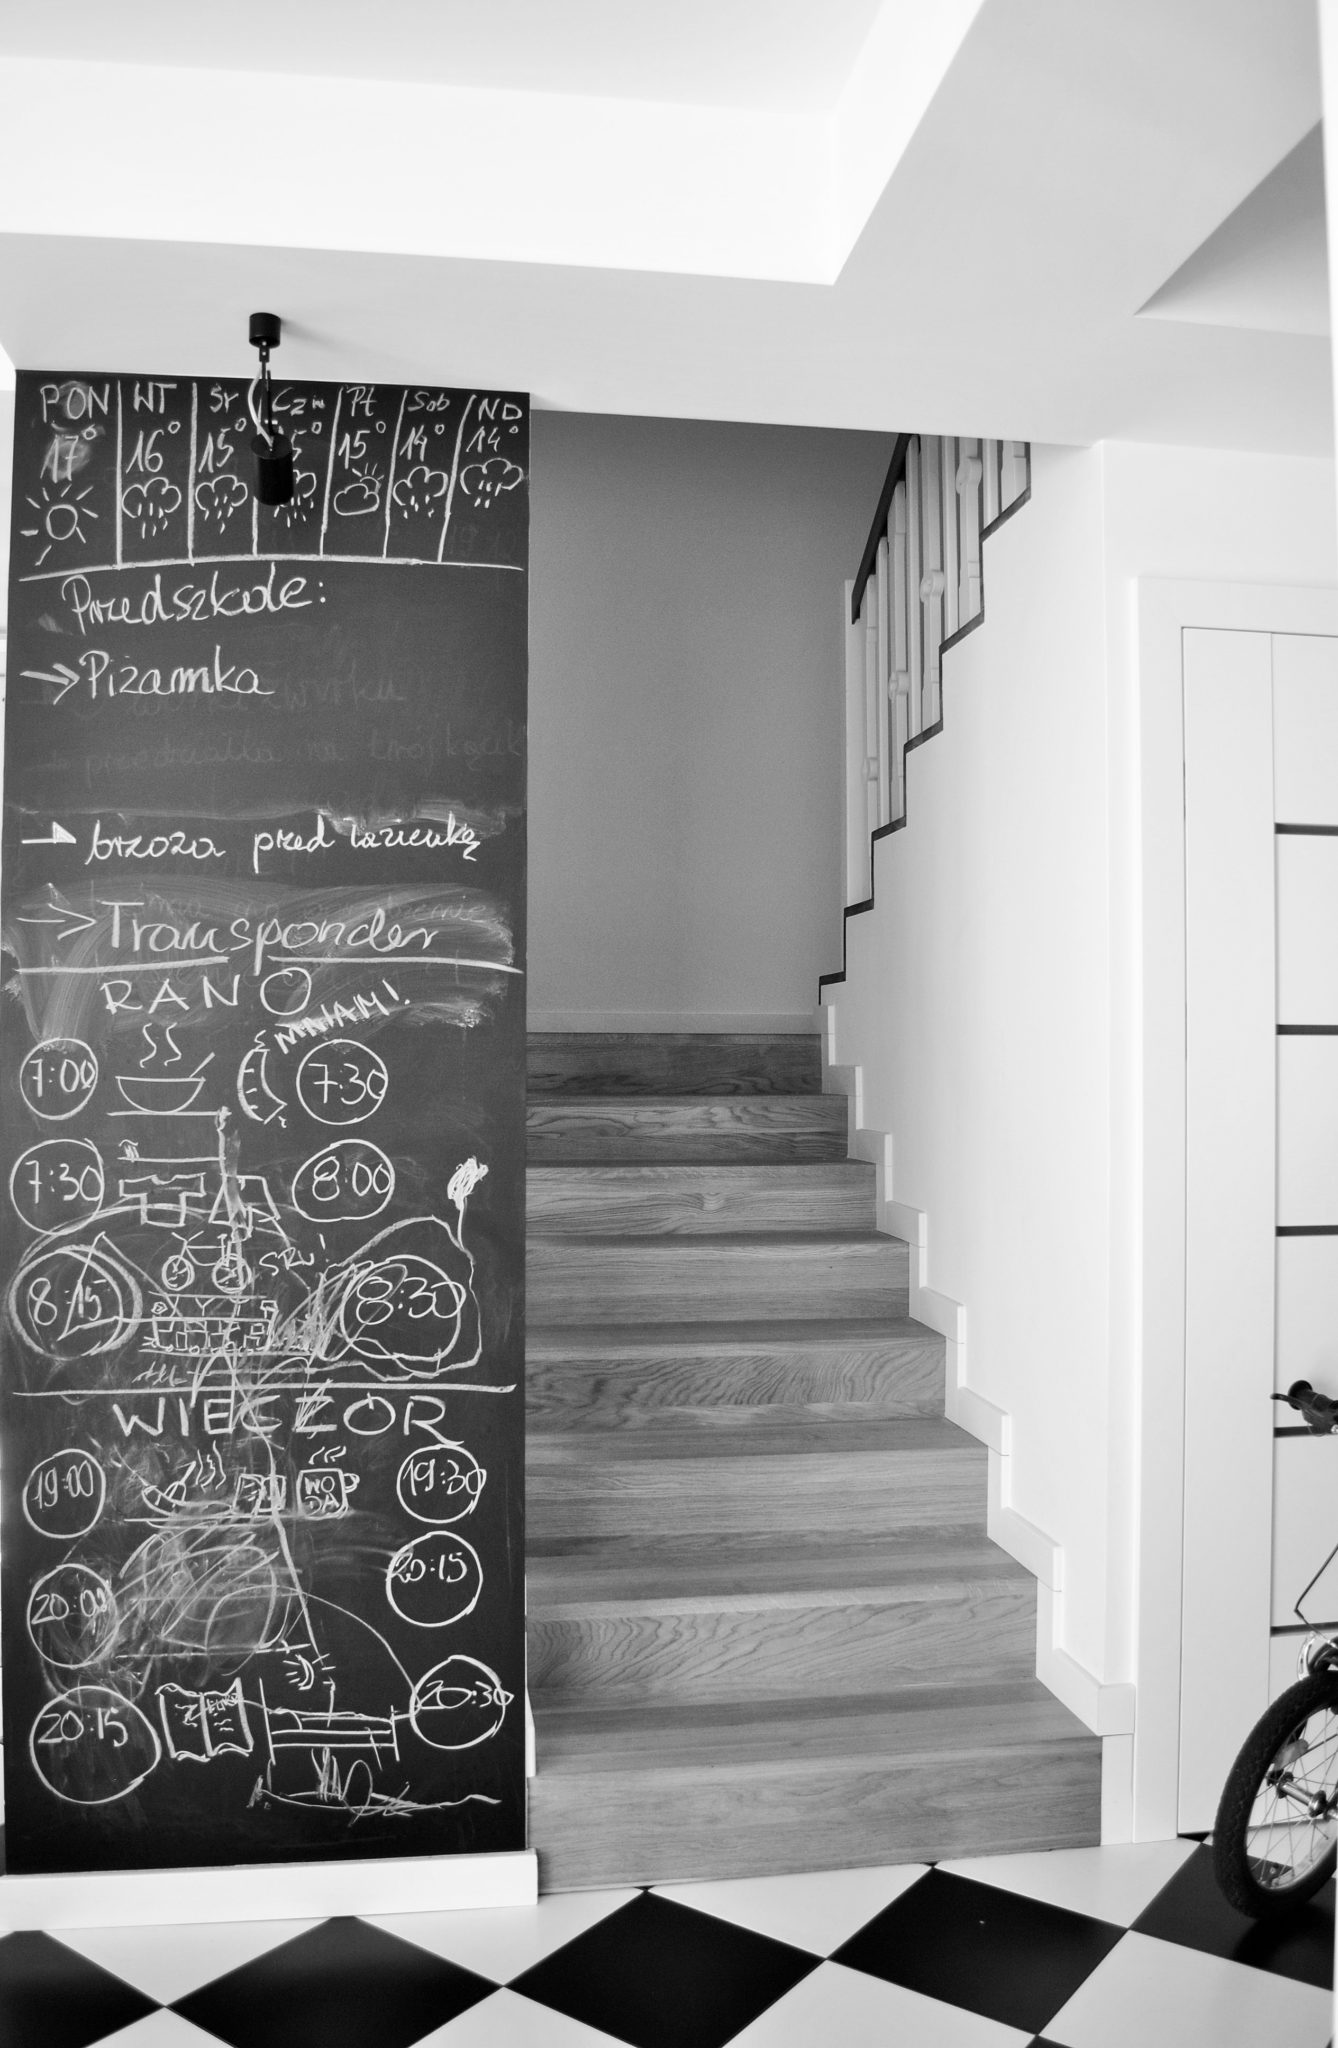 PON WT Śr Cz Pt Sob ND
17° 16° 15° 5° 15° 14° 14°
Przedszkole:
→ Piżamka
→ brzoza pred łazienką
→ Transponder
RANO
MNIAM!
7:00 7:30
7:30 8:00
SRU!
8:15 8:30
WIECZÓR
19:00 WODA 19:30
20:00 20:15
20:15 20:30